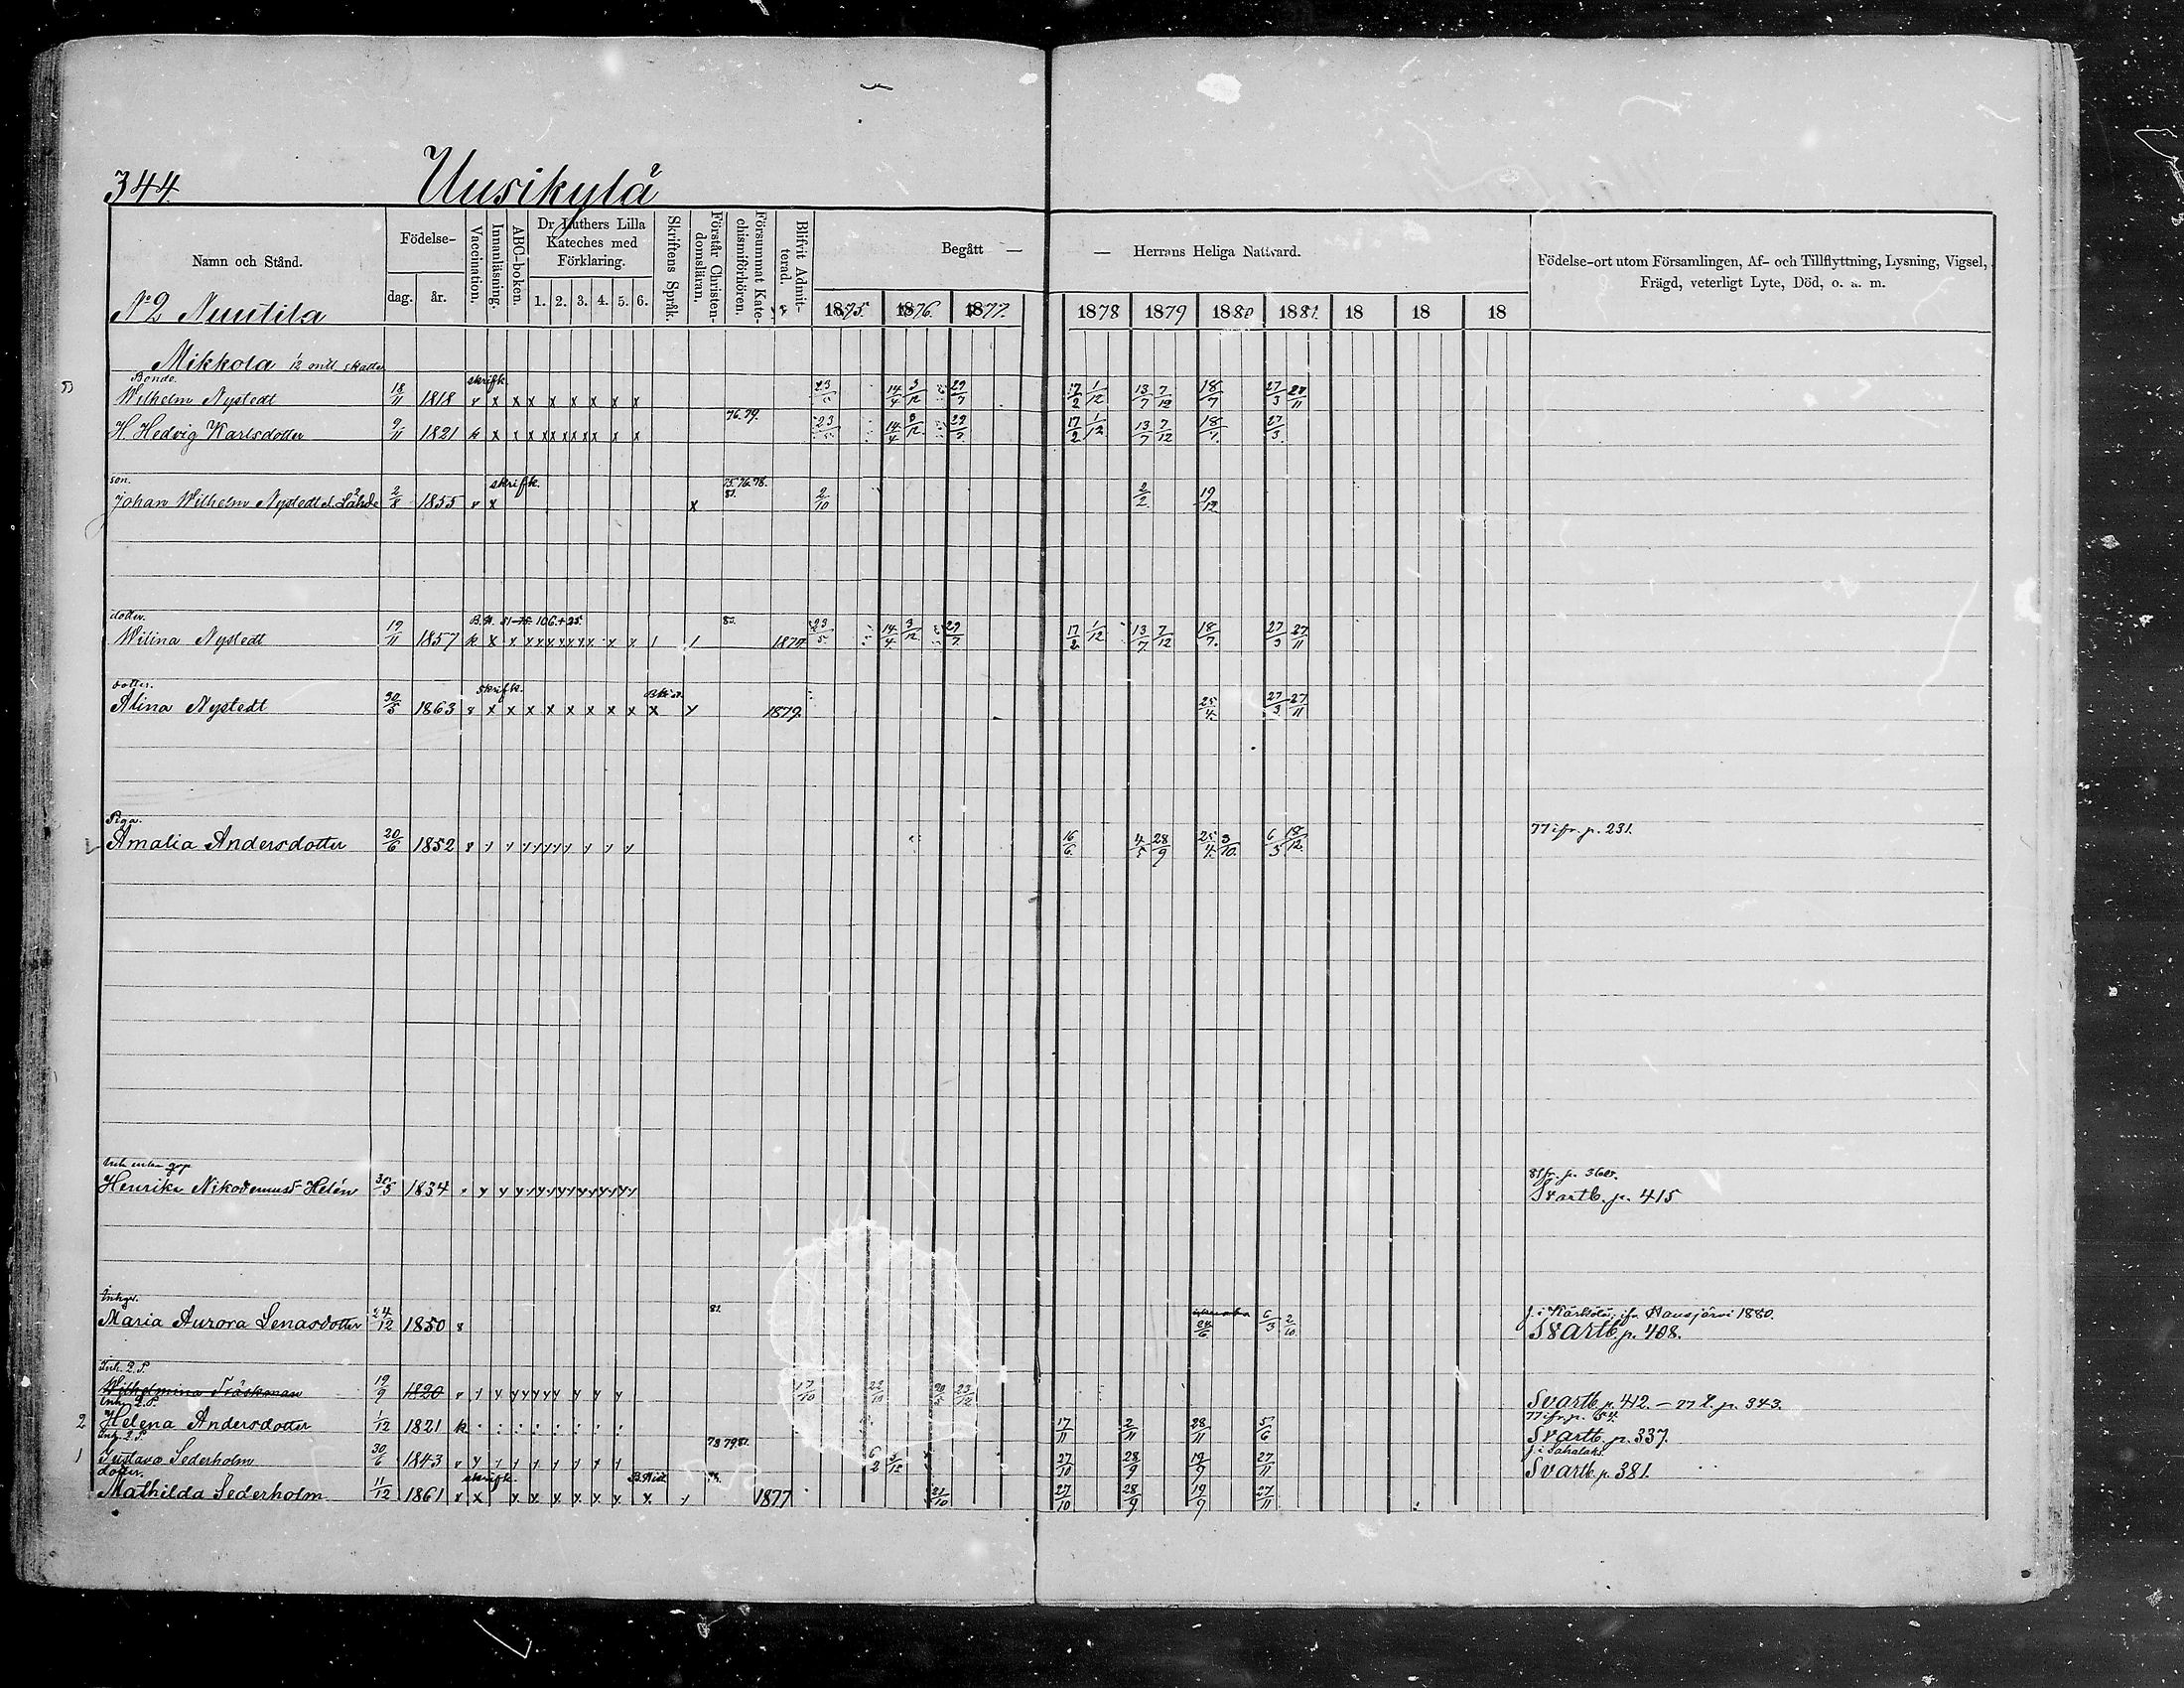 344.
Uusikylä
Namn och Stånd.
Födelse-
dag.
år.
Vaccination.
Innanläsning.
ABC-boken.
Dr Luthers Lilla
Kateches med
Förklaring.
1. 2. 3. 4. 5. 6.
Skriftens Språk.
Förstår Christen-
domsläran.
Försummat Kate-
chismiförhören.
Blifvit Admit-
terad.
Begått —
— Herrans Heliga Nattvard.
Födelse-ort utom Församlingen, Af- och Tillflyttning, Lysning, Vigsel,
Frägd, veterligt Lyte, Död, o. a. m.
1875. 1876. 1877. 1878 1879 1880 1881. 18 18 18
No 2 Nuutila
Mikkola 1/2 mtl skatte
Bonde. skrifk.
Wilhelm Nystedt 18/11 1818 v x x x x x x x x 23/5 14/4 3/12 29/7 17/2 1/12 13/7 7/12 18/7 27/3 27/11
76. 79.
H. Hedvig Karlsdotter 9/11 1821 k x x x xx xx xx x x 23/5 14/4 3/12 29/7 17/2 1/12 13/7 7/12 18/7 27/3
son. skrifk. 75. 76. 78.
81.
Johan Wilhelm Nystedt el. Lähde 2/8 1855 v x x 2/10 2/2 19/12
dotter. 106. + 25. 82.
Wilina Nystedt 19/11 1857 k x x 1874 23/5 14/4 3/12 29/7 17/2 1/12 13/7 7/12 18/7 27/3 27/11
dotter. skrifk.
Alina Nystedt 30/5 1863 v x x x x x x x x x 1879. 25/4 27/3 27/11
Piga. 77 ifr. p. 231.
Amalia Andersdotter 20/6 1852 v 16/6 4/5 28/9 25/4 3/10 6/3 18/12
Henrika Nikodemusd. Helén 30/5 1834
Svartb. p. 415
Inhys. 81. f. i Kärkölä; ifr. Hausjärvi 1880.
Maria Aurora Lenasdotter 24/12 1850 v 24/6 6/3 2/10 Svartb. p. 408.
Inh. 2. P.
Wilhelmina Träskman 19/9 1820 v 17/10 22/10 20/5 23/12 Svartb. p. 412. – 77 t. p. 343.
Inh. 2. P. 77 ifr. p. 54.
2 Helena Andersdotter 1/12 1821 k 17/11 2/11 28/11 5/6 Svartb. p. 337.
Inh. 2. P. 78 79 81. f. i Sahalaks
1 Gustava Sederholm 30/6 1843 v 6/2 3/12 27/10 28/9 19/9 27/11 Svartb. p. 381.
dotter. skrifk.
Mathilda Sederholm 11/12 1861 v x 1877 21/10 27/10 28/9 19/9 27/11